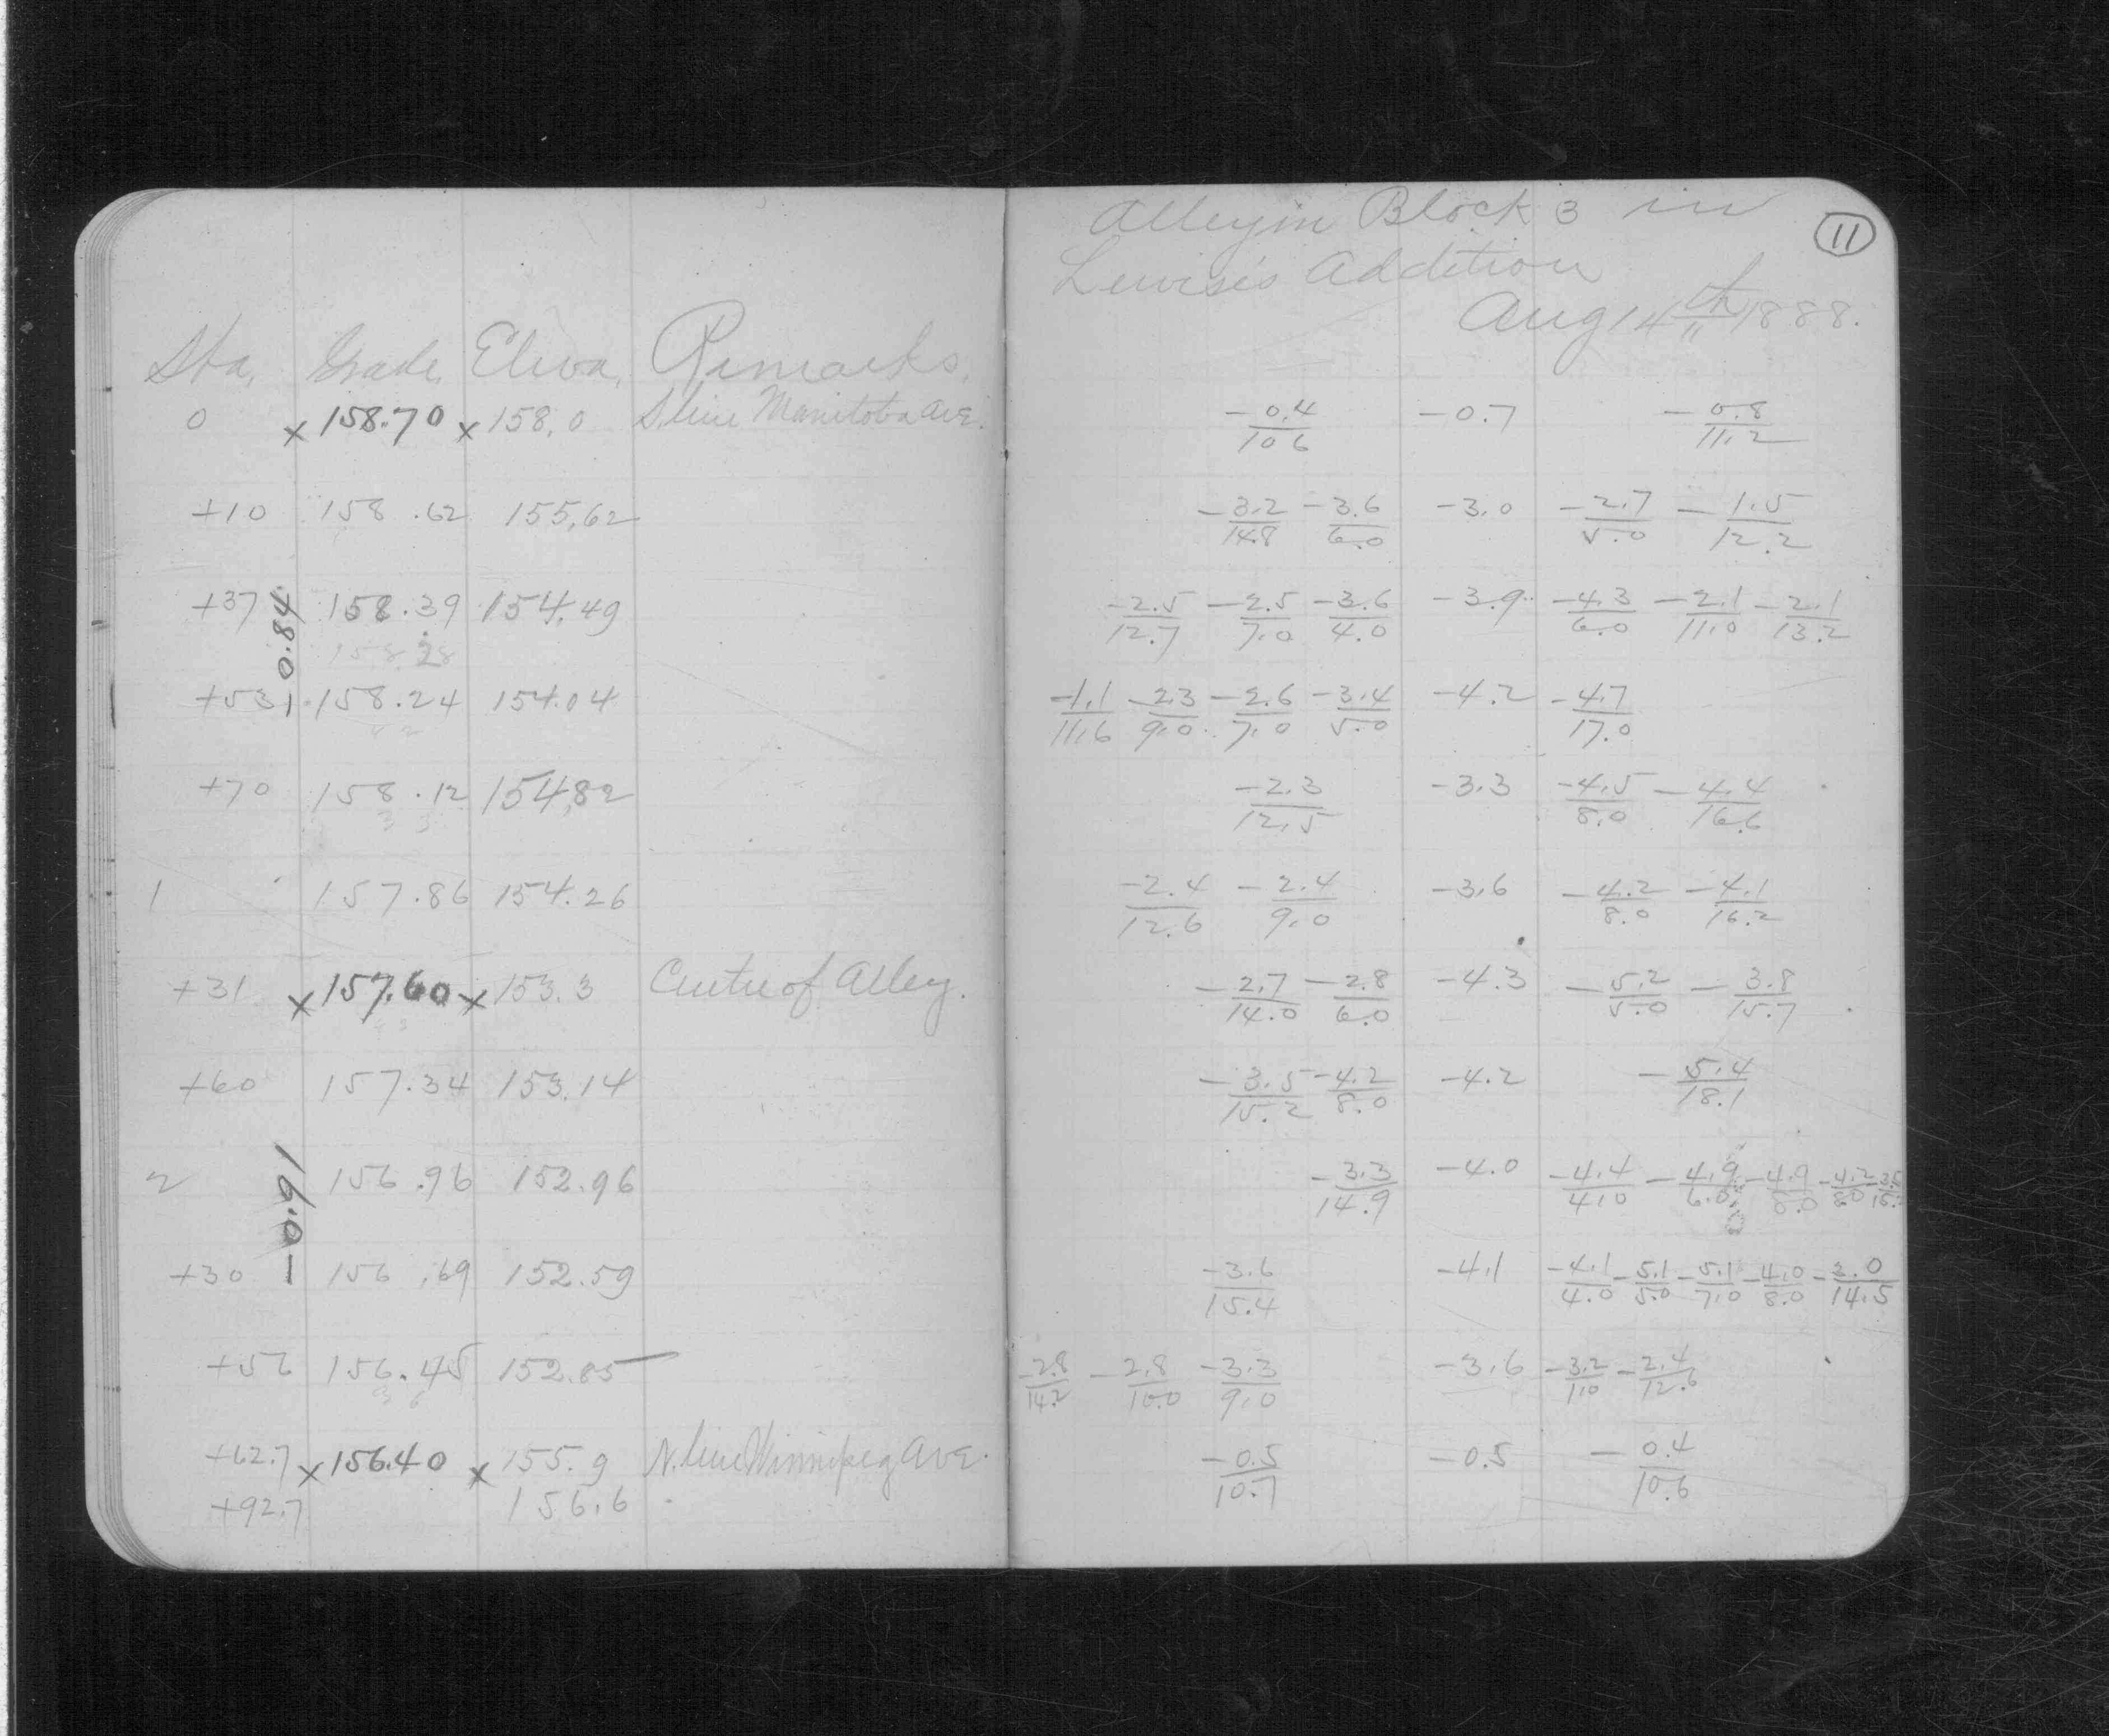 Alley in Block 3 in
Lewis's Addition
11
Aug 14th 1888.
Sta. Grade. Eleva. Remarks.
0 x 158.70 x 158.0 S. line Manitoba Ave. -0.4/10.6 -0.7 -0.8/11.2
+10 158.62 155.62 -3.2/14.8 -3.6/6.0 -3.0 -2.7/5.0 -1.5/12.2
+37 158.39 154.49 -2.5/12.7 -2.5/7.0 -3.6/4.0 -3.9 -4.3/6.0 -2.1/11.0 -2.1/13.2
0.84
158.28
+53 158.24 154.04 -1.1/11.6 -2.3/9.0 -2.6/7.0 -3.4/5.0 -4.2 -4.7/17.0
+70 158.12 154.82 -2.3/12.5 -3.3 -4.5/8.0 -4.4/16.6
1 157.86 154.26 -2.4/12.6 -2.4/9.0 -3.6 -4.2/8.0 -4.1/16.2
+31 x 157.60 x 153.3 Centre of Alley. -2.7/14.0 -2.8/6.0 -4.3 -5.2/5.0 -3.8/15.7
+60 157.34 153.14 -3.5/15.2 -4.2/8.0 -4.2 -5.4/18.1
2 156.96 152.96 -3.3/14.9 -4.0 -4.4/4.0 -4.9/6.0 -4.9/6.0 -4.2/8.0
-0.91
+30 156.69 152.59 -3.6/15.4 -4.1 -4.1/4.0 -5.1/5.0 -5.1/7.0 -4.0/8.0 -3.0/14.5
+56 156.45 152.85 -2.8/14.2 -2.8/10.0 -3.3/9.0 -3.6 -3.2/1.0 -2.4/12.6
+62.7 x 156.40 x 155.9 N. line Winnipeg Ave. -0.5/10.7 -0.5 -0.4/10.6
+92.7 156.6